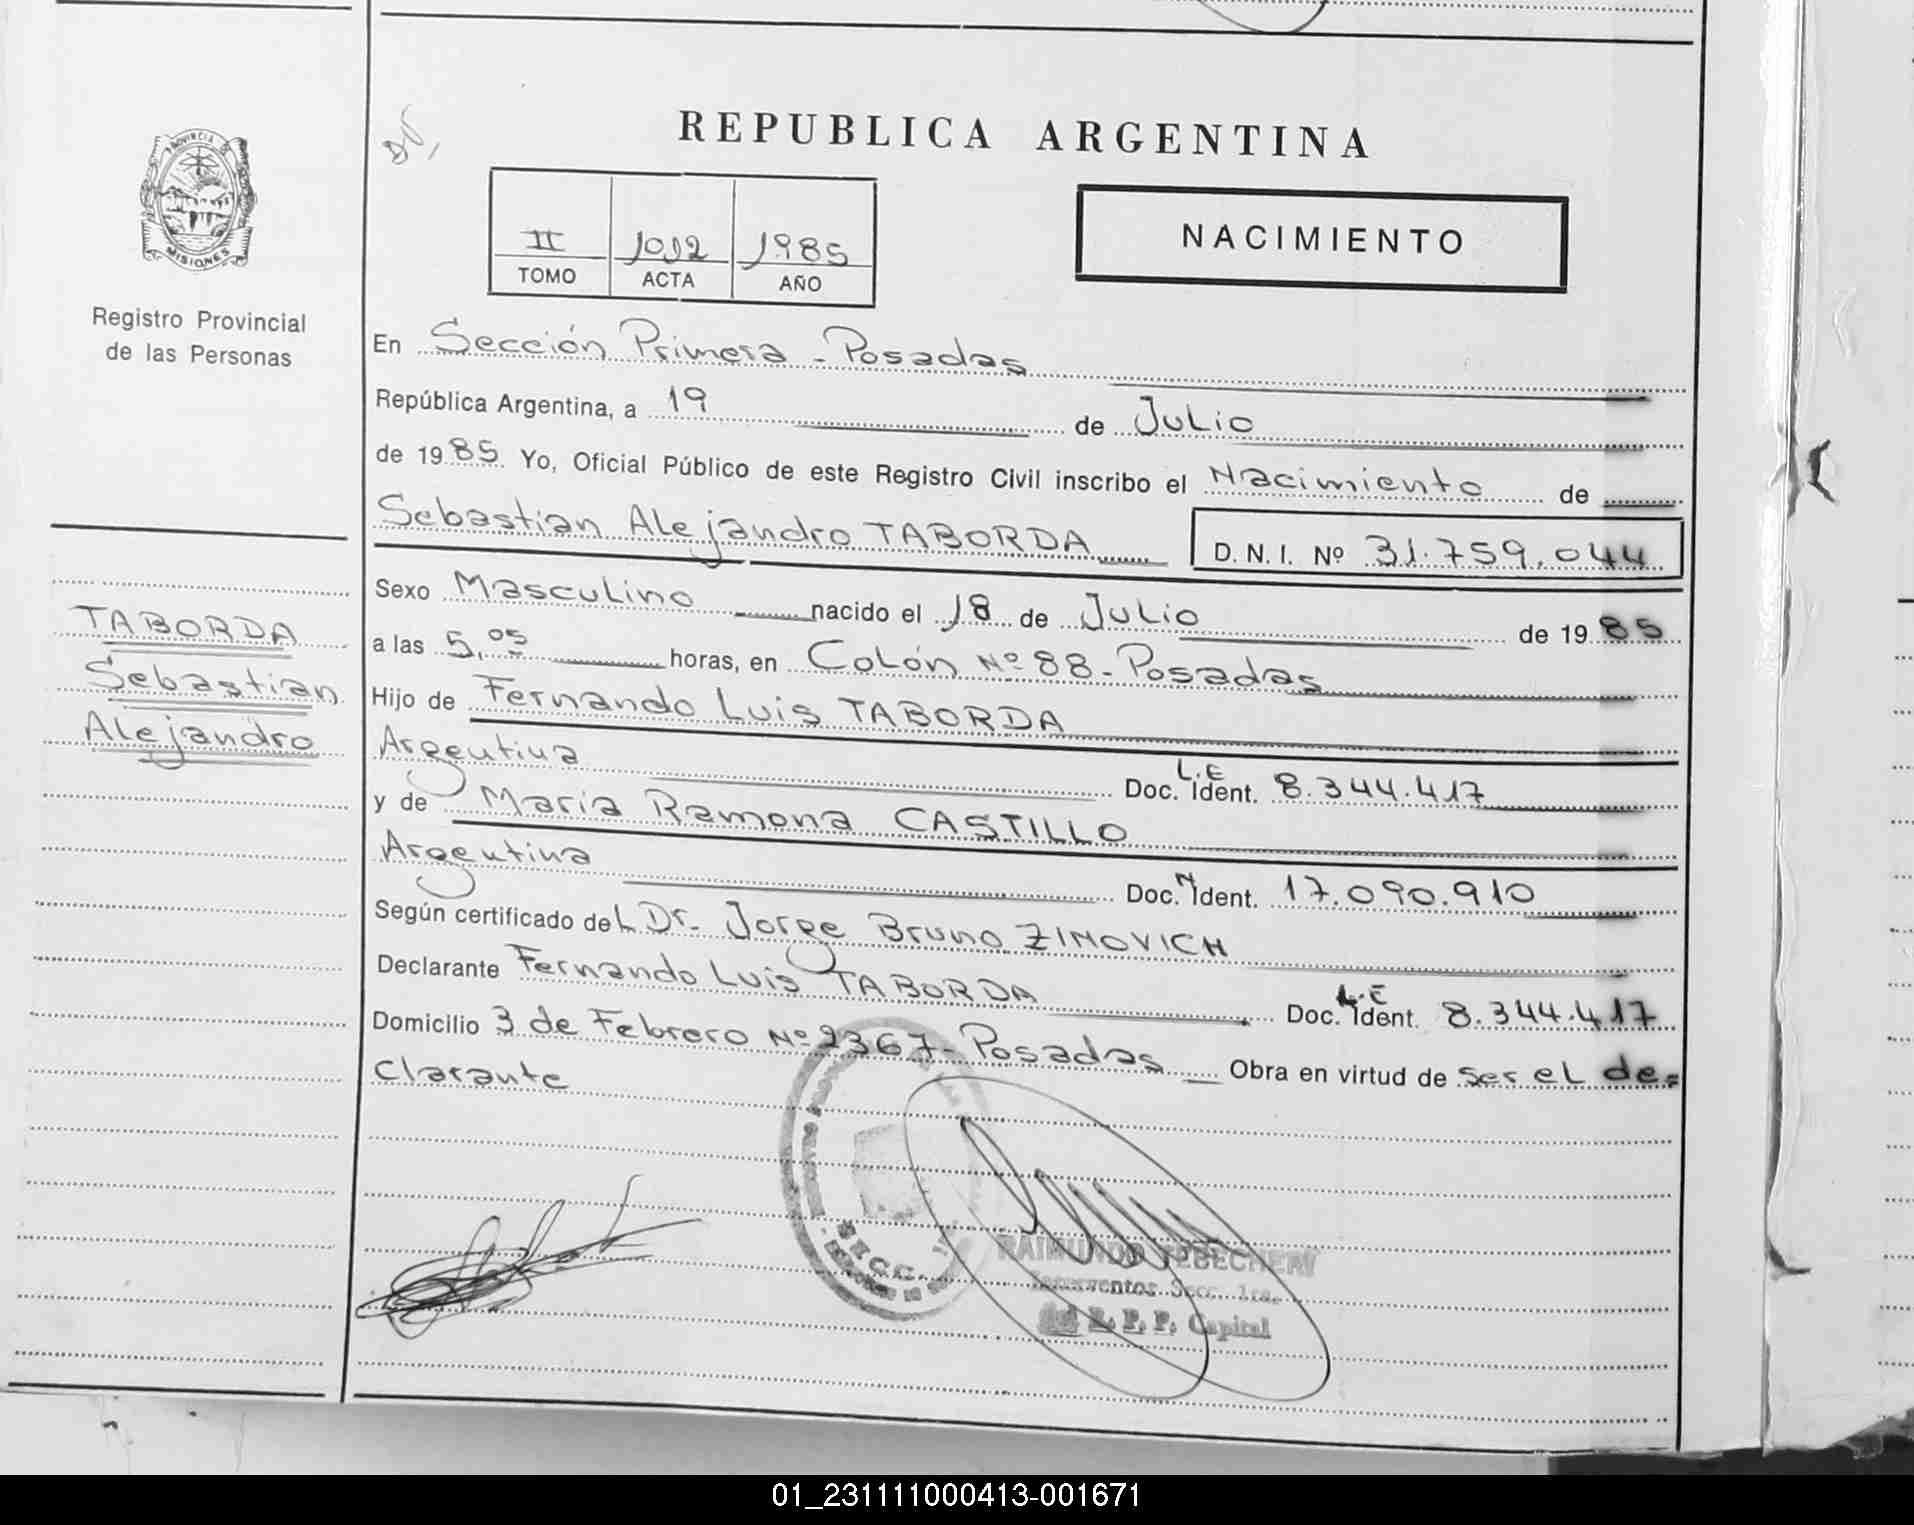 PROVINCIA DE
MISIONES
Registro Provincial
de las Personas
REPUBLICA ARGENTINA
II 1012 1985
TOMO ACTA AÑO
NACIMIENTO
En Sección Primera - Posadas
República Argentina, a 19 de Julio
de 1985 Yo, Oficial Público de este Registro Civil inscribo el Nacimiento de
Sebastian Alejandro TABORDA D.N.I. Nº 31.759.044
Sexo Masculino nacido el 18 de Julio de 1985
a las 5,05 horas, en Colón Nº 88 - Posadas
Hijo de Fernando Luis TABORDA
Argentina Doc. Ident. L.E 8.344.417
y de María Ramona CASTILLO
Argentina Doc. N Ident. 17.090.910
Según certificado del Dr. Jorge Bruno ZIMOVICH
Declarante Fernando Luis TABORDA Doc. Ident. L.E 8.344.417
Domicilio 3 de Febrero Nº 2367 - Posadas Obra en virtud de ser el de=
clarante
TABORDA
Sebastian
Alejandro
SECC.
RAIMUNDO
Interventor Secc. 1ra.
R. P. P. Capital
01_231111000413-001671